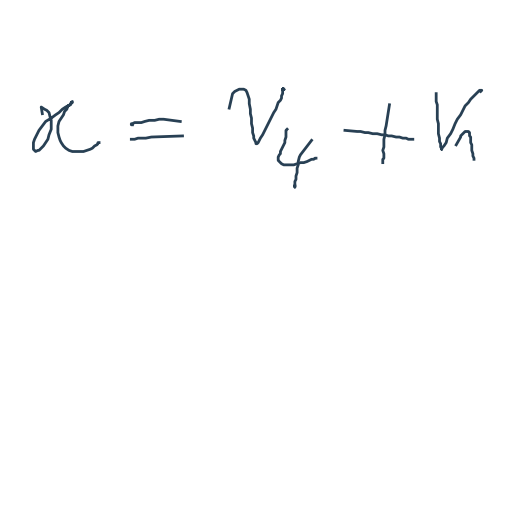 x = V₄ + Vₙ